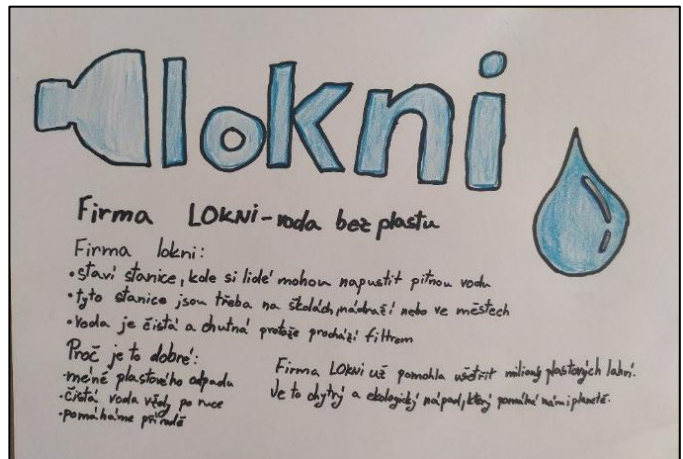 lokni
Firma LOKNI-voda bez plastu
Firma lokni:
•staví stanice, kde si lidé mohou napustit pitnou vodu
•tyto stanice jsou třeba na školách, nádraží nebo ve městech
•voda je čistá a chutná protože prochází filtrem
Proč je to dobré:
•méně plastového odpadu
•čistá voda vždy po ruce
•pomáháme přírodě
Firma LOKNI už pomohla ušetřit miliony plastových lahví.
Je to chytrý a ekologický nápad, který pomáhá nám i planetě.